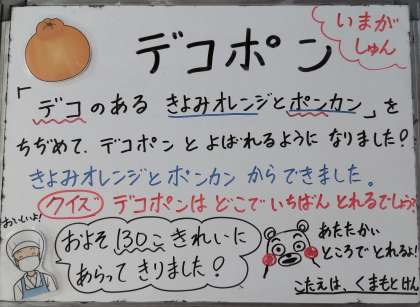 いまが
しゅん
デコポン
「デコのある きよみオレンジとポンカン」を
ちぢめて、デコポン と よばれるように なりました!
きよみオレンジと ポンカン からできました。
クイズ デコポンは どこで いちばん とれるでしょう?
おいしいよ!
およそ 130こ きれいに
あらって きりました!
あたたかい
ところで とれるよ!
こたえは、くまもとけん